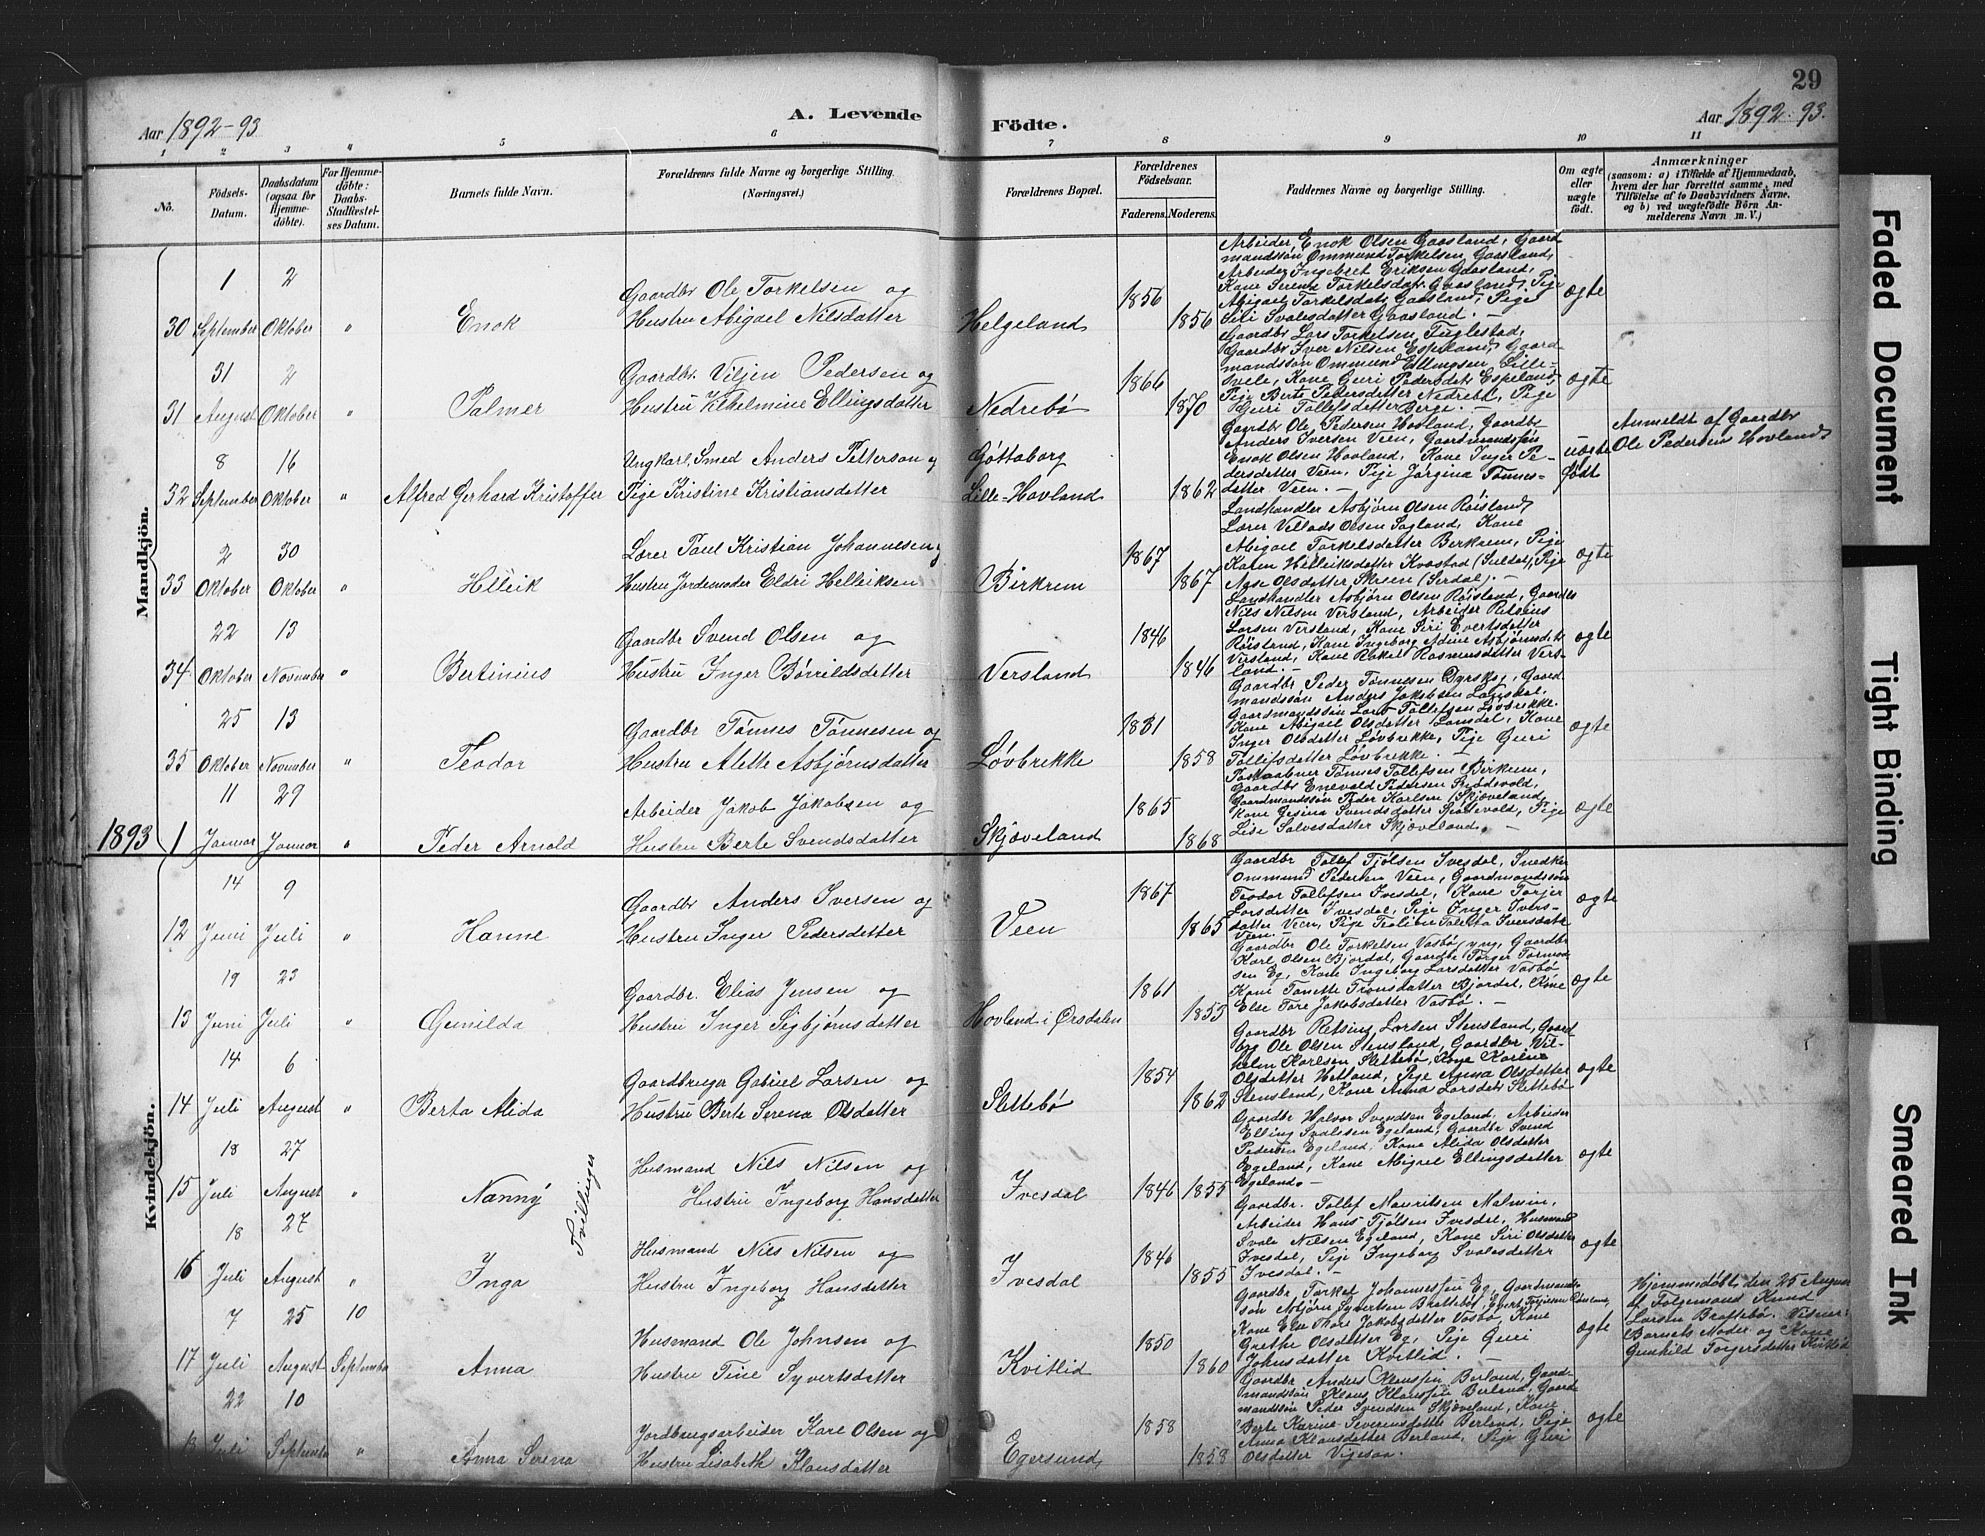 29
Aar 1892-93
A. Levende
Födte.
Aar 1892-93.
1 2 3 4 5 6 7 8 9 10 11
No.
Födsels-
Datum.
Daabsdatum
(ogsaa for
Hjemme-
döbte).
For Hjemme-
döbte:
Daabs-
Stadfæstel-
ses Datum.
Barnets fulde Navn.
Forældrenes fulde Navne og borgerlige Stilling.
(Næringsvei.)
Forældrenes Bopæl.
Forældrenes
Födselsaar.
Faderens. Moderens.
Faddernes Navne og borgerlige Stilling.
Om ægte
eller
uægte
født.
Anmærkninger
(saasom: a) i Tilfælde af Hjemmedaab,
hvem der har forrettet samme, med
Tilföielse af to Daabsvidners Navne.
og b) ved uægtefödte Börn An-
melderens Navn m. V.)
Mandkjön.
1 2
30 September Oktober " Enok
Gaardbr Ole Torkelsen og
Hustru Abigael Nilsdatter
Helgeland
1856
1856
Arbeider Enok Olsen Gaasland, Gaard
mandssøn Ommund Torkelsen Gaasland,
Arbeider Ingebret Eriksen Gaasland,
Kone Serene Torkelsdatr Gaasland, Pige
Abigael Torkelsdatr Gaasland, Pige
Sili Svalesdatter Gaasland. –
ægte
31 2
31 August Oktober " Palmer
Gaardbr. Viljen Pedersen og
Hustru Vilhelmine Ellingsdatter
Nedrebø
1866
1870
Gaardbr Lars Torkelsen Fuglestad,
Gaardbr Iver Nilsen Espeland, Gaard-
mandssøn Ommund Ellingsen Lille-
Kone Guri Pedersdatr Espeland,
Pige Berte Pedersdatter Nedrebø, Pige
Guri Tollefsdatter Berge. –
ægte
8 16
32 September Oktober " Alfred Gerhard Kristoffer
Ungkarl, Smed Anders Petterson og
Pige Kristine Kristiansdatter
Gøttaborg
Lille-Hovland
1862
Gaardbr Ole Pedersen Hovland, Gaardbr
Anders Iversen Veen, Gaardmandssøn
Enok Olsen Hovland, Kone Inger Pe-
dersdatter Veen, Pige Jørgina Tønnes-
datter Veen. –
uægte
født
Anmeldt af Gaardbr
Ole Pedersen Hovland
2 30
33 Oktober Oktober " Helleik
Lærer Paul Kristian Johannesen og
Hustru Jordemoder Eldri Helleiksen
Birkrem
1867
1867
Landhandler Asbjørn Olsen Røisland,
Lærer Vellads Olsen Sagland, Kone
Abigael Torkelsdatter Berkrem, Pige
Karen Helleiksdatter Kvastad (Suldal), Pige
Aase Olsdatter Skreen (Serdal). –
ægte
22 13
34 Oktober November " Bertinius
Gaardbr Svend Olsen og
Hustru Inger Børrildsdatter
Versland
1846
1846
Landhandler Asbjørn Olsen Røisland, Gaardbr
Nils Nilsen Versland, Arbeider Rasmus
Larsen Versland, Kone Siri Evertsdatter
Røisland, Kone Ingeborg Adine Asbjørnsdtr
Versland, Kone Rakel Rasmusdatter Vers-
land. –
ægte
25 13
35 Oktober November " Teodor
Gaardbr Tønnes Tønnesen og
Hustru Alette Asbjørnsdatter
Løvbrekke
1831
1858
Gaardbr Peder Tønnesen Dyrskog, Gaard
mandssøn Anders Jakobsen Langsdal,
Gaardmandssøn Lars Tollefsen Løvbrekke.
Kone Abigael Olsdatter Lansdal, Kone
Inger Olsdatter Løvbrekke, Pige Guri
Tollefsdatter Løvbrekke –
ægte
1893
11 29
1 Januar Januar " Peder Arnold
Arbeider Jakob Jakobsen og
Hustru Berte Svendsdatter
Skjæveland
1865
1868
Postaabner Tønnes Tollefsen Birkrem,
Gaardbr Enevald Pedersen Skjødevold,
Gaardmandssøn Peder Karlsen Skjæveland,
Kone Gesina Svendsdatter Skodevold, Pige
Lise Salvesdatter Skjæveland. –
ægte
Kvindekjön.
14 9
12 Juni Juli " Hanne
Gaardbr Anders Iversen og
Hustru Inger Pedersdatter
Veen
1867
1865
Gaardbr Tollef Tjølsen Ivesdal, Snedker
Ommund Pedersen Veen, Gaardmandssøn
Teodor Tollefsen Ivesdal, Kone Torjer
Larsdatter Ivesdal, Pige Inger Ivers-
datter Veen, Pige Teoline Toletta Iversdatr
Veen. –
ægte
19 23
13 Juni Juli " Gunilda
Gaardbr. Elias Jensen og
Hustru Inger Sigbjørnsdatter
Hovland i Ørsdalen
1861
1853
Gaardbr Ole Torkelsen Vasbø, yng, Gaardbr
Karl Olsen Bjordal, Gaardbr Torger Tormod
sen Eg, Kone Ingeborg Larsdatter Vasbø
Kone Tonette Tronsdatter Bjordal, Kone
Else Tore Jakobsdatter Vasbø. –
ægte
14 6
14 Juli August " Berta Alida
Gaardbruger Gabriel Larsen og
Hustru Berte Serena Olsdatter
Slettebø
1854
1862
Gaardbr Retsius Larsen Stensland, Gaard
brg Ole Olsen Stensland, Gaardbr Vil-
helm Karlsen Slettebø, Kone Karine
Olsdatter Hetland, Pige Anna Olsdatter
Stensland, Kone Anna Larsdatr Slettebø
ægte
18 27
15 Juli August " Nanny
Tvillinger
Husmand Nils Nilsen og
Hustru Ingeborg Hansdatter
Ivesdal
1846 1855
Gaardbr Halvor Svendsen Egeland, Arbeider
Elling Svalesen Egeland, Gaardbr Svend
Pedersen Egeland, Kone Alida Olsdatter
Egeland, Kone Abigael Ellingsdatter
Egeland. –
ægte
18 27
16 Juli August " Inga
Husmand Nils Nilsen og
Hustru Ingeborg Hansdatter
Ivesdal
1846
1855
Gaardbr. Tollef Mauritsen Malmin,
Arbeider Hans Tjølsen Ivesdal, Husmand
Svale Nilsen Egeland, Kone Siri Olsdatter
Ivesdal, Pige Ingeborg Svalesdatter
Ivesdal. –
ægte
7 25 10
17 Juli August September Anna
Husmand Ole Johnsen og
Hustru Tine Syvertsdatter
Kvitlid
1850
1860
Gaardbr Torkel Johannesen Eg, Gaardmands-
søn Asbjørn Syvertsen Brattebø, Evert Torjusen
Kone Else Thore Jakobsdatter Vasbø, Kone
Grethe Olsdatter Eg, Pige Guri
Johnsdatter Kvitlid. –
ægte
Hjemmedøbt den 25 August
af Følgemand Knud
Larsen Brattebø. Vidner:
Barnets Moder og Kone
Gunhild Torgersdatter Kvitlid
22 10
18 Juli September " Anna Serena
Jordbrugsarbeider Karl Olsen og
Hustru Lisabeth Klausdatter
Egersund,
1858
1858
Gaardbr Anders Klaussen Berland, Gaard-
mandssøn Klaus Klaussen Berland, Gaard
mandssøn Peder Svendsen Skjæveland, Kone
Berte Karine Severinsdatter Berland, Pige
Anna Klausdatter Berland, Pige Guri
Olsdatter Vigesaa.
ægte
Faded Document
Tight Binding
Smeared Ink